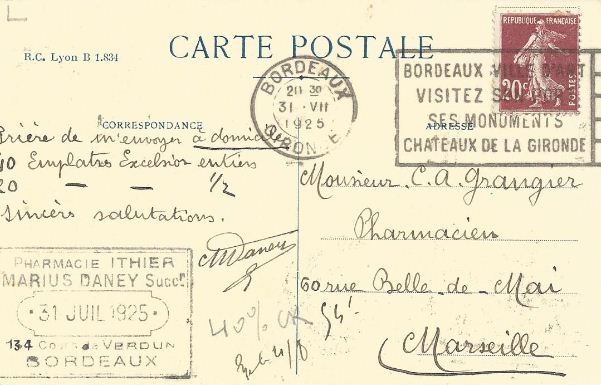 R.C. Lyon B 1.834
CARTE POSTALE
RÉPUBLIQUE FRANÇAISE
POSTES
20c
BORDEAUX
20 30
31 VII
1925
GIRONDE
BORDEAUX VILLE D'ART
VISITEZ SON PORT
SES MONUMENTS
CHATEAUX DE LA GIRONDE
CORRESPONDANCE
ADRESSE
Prière de m'envoyer à domicile
40 Emplatres Excelsior entiers
20 — — 1/2
Sincères salutations.
MDaney
PHARMACIE ITHIER
MARIUS DANEY Succr
· 31 JUIL 1925 ·
134 Cours de VERDUN
BORDEAUX
40%
Monsieur C. A. Grangier
Pharmacien
60 rue Belle-de-Mai
Marseille